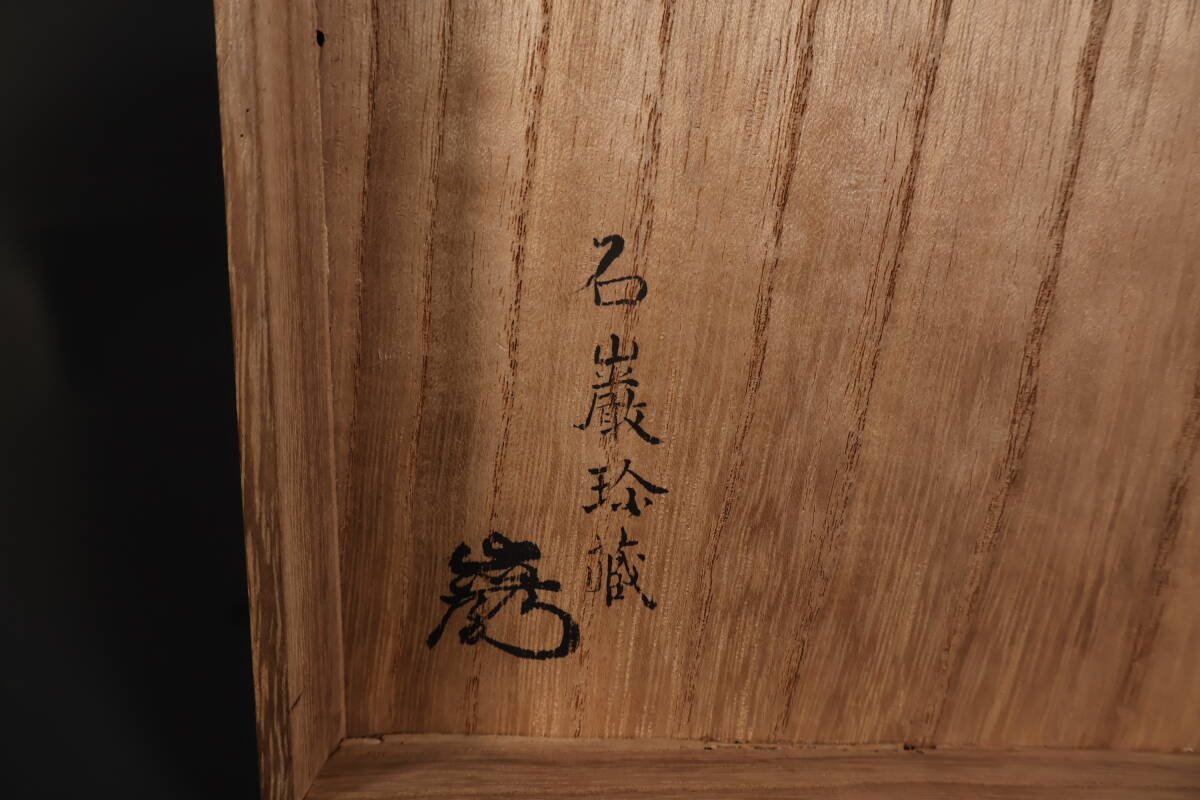 石巖珍藏